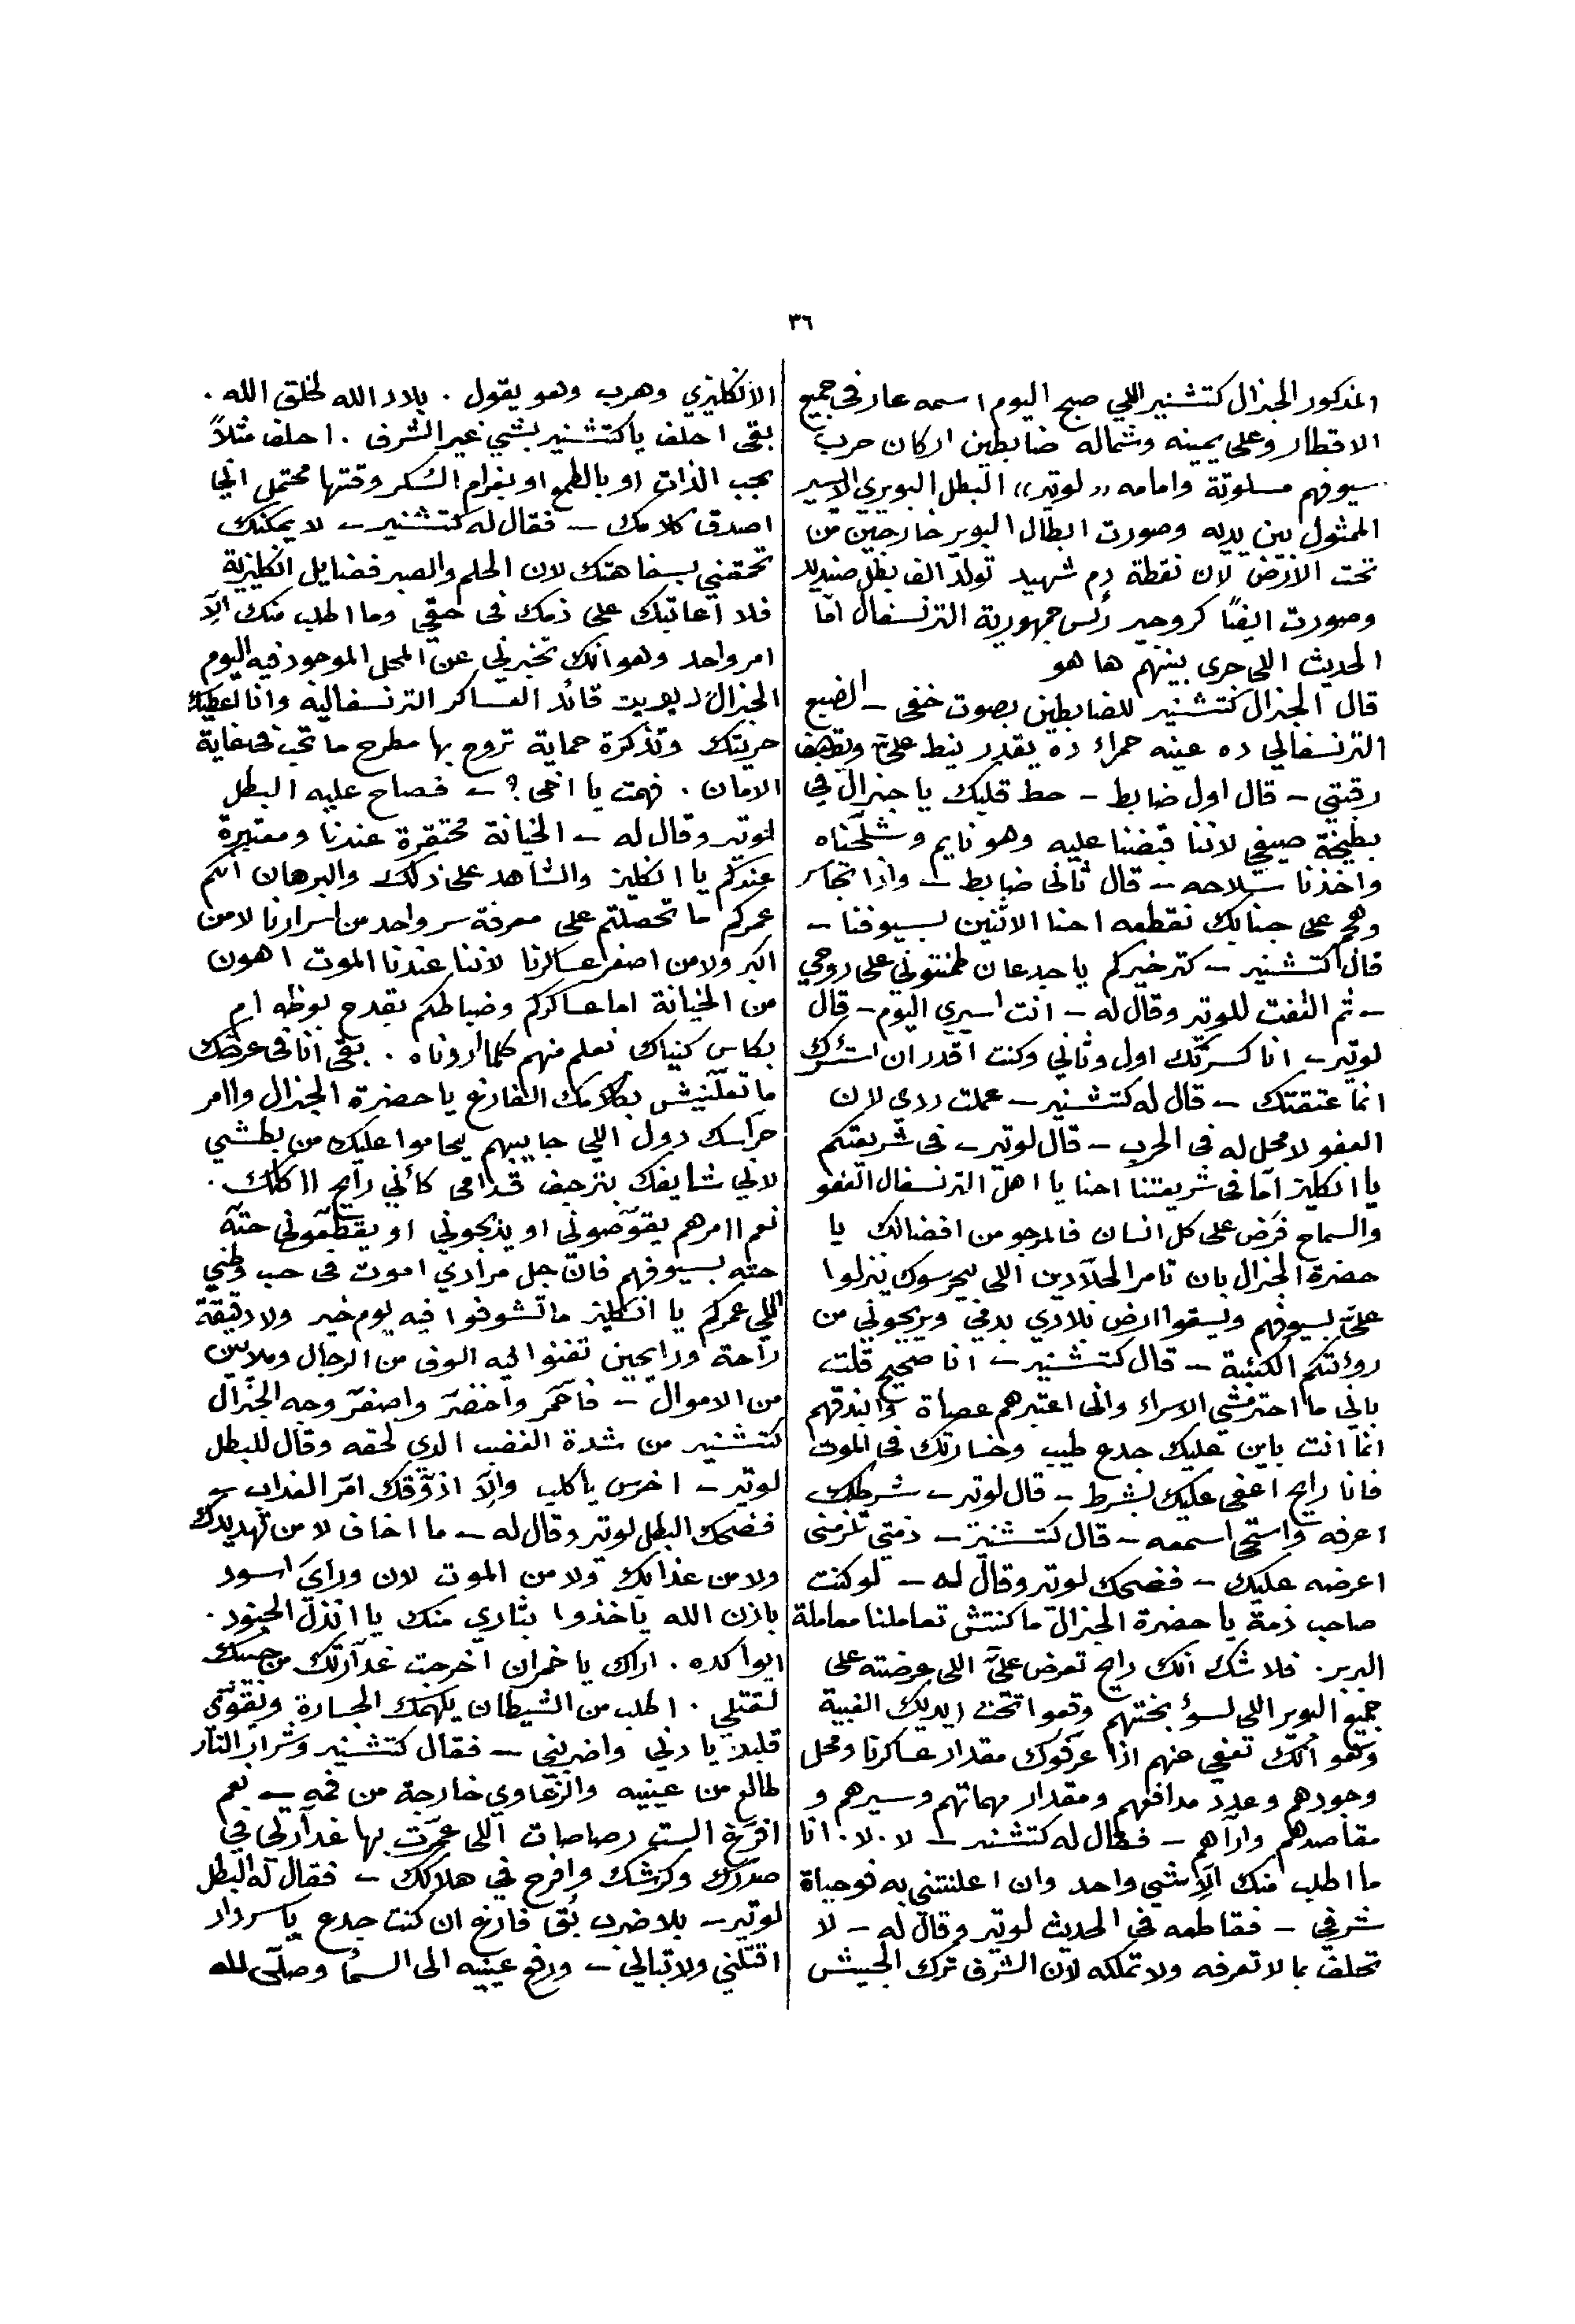 ٣٦
المذكور الجنرال كتشنير اللي صبح اليوم اسمه عار فى جميع
الاقطار وعلى يمينه وشماله ضابطين اركان حرب
سيوفهم مسلوتة وامامه «لوتير» البطل البويري الاسير
الممثول بين يديه وصورت ابطال البوير خارجين من
تحت الارض لان نقطة دم شهيد تولد الف بطل صنديد
وصورت ايضًا كروجير رئس جمهورية الترنسفال امّا
الحديث اللى جرى بينهم ها هو
قال الجنرال كتشنير للضابطين بصوت خفى – الضبع
الترنسفالي ده عينه حمراء ده يقدر ينط علىّ ويقطف
رقبتي – قال اول ضابط – حط قلبك يا جنرال في
بطيخة صيفي لاننا قبضنا عليه وهو نايم وشلّحناه
واخذنا سلاحه – قال ثانى ضابط – واذا تجاسر
وهجم على جنابك نقطعه احنا الاثنين بسيوفنا –
قال كتشنير – كتر خيركم يا جدعان طمنتوني على روحي
– ثم التفت للوتير وقال له – انت اسيري اليوم – قال
لوتير – انا كسرتك اول وثاني وكنت اقدر ان استأسرك
انما عتقتك – قال له كتشنير – عملت ردي لان
العفو لا محل له فى الحرب – قال لوتير – فى شريعتكم
يا انكليز امّا فى شريعتنا احنا يا اهل الترنسفال العفو
والسماح فرض على كل انسان فالمرجو من افضالك يا
حضرة الجنرال بان تامر الجلادين اللى بيحرسوك ينزلوا
علىّ بسيوفهم ويسقوا ارض بلادي بدمي ويريحوني من
روئتكم الكئيبة – قال كتشنير – انا صحيح قلت
بانى ما احترمشي الاسراء وانى اعتبرهم عصاة وابندقهم
انما انت باين عليك جدع طيب وخسارتك فى الموت
فانا رايح اعفى عليك بشرط – قال لوتير – شرطك
اعرفه واستحى اسمعه – قال كتشنير – ذمتي تلزمنى
اعرضه عليك – فضحك لوتير وقال له – لو كنت
صاحب ذمة يا حضرة الجنرال ما كنتش تعاملنا معاملة
البربر. فلا شك انك رايح تعرض علىّ اللى عرضته على
جميع البوير اللى لسؤ بختهم وقعوا تحت ايديك الغبية
وهو انك تعفي عنهم اذا عرّفوك مقدار عساكرنا ومحل
وجودهم وعدد مدافعهم ومقدار مهماتهم وسيرهم و
مقاصدهم وارآهم – فقال له كتشنير – لا . لا . انا
ما اطلب منك الّا شي واحد وان اعلنتني به فوحياة
شرفي – فقاطعه فى الحديث لوتير وقال له – لا
تحلف بما لا تعرفه ولا تملكه لان الشرف ترك الجيش
الانكليزي وهرب وهو يقول . بلاد الله لخلق الله .
بقى احلف يا كتشنير بشي غير الشرف . احلف مثلاً
بحب الذات او بالطمع او بغرام السكر وقتها محتمل اني
اصدق كلامك – فقال له كتشنير – لا يمكنك
تحمقني بسفاهتك لان الحلم والصبر فضايل انكليزية
فلا اعاتبك على ذمك فى حقي وما اطلب منك الّا
امر واحد وهو انك تخبرني عن المحل الموجود فيه اليوم
الجنرال ديويت قائد العساكر الترنسفالية وانا اعطيك
حريتك وتذكرة حماية تروح بها مطرح ما تحب فى غاية
الامان . فهمت يا اخى ؟ – فصاح عليه البطل
لوتير وقال له – الخيانة محتقرة عندنا ومعتبرة
عندكم يا انكليز والشاهد على ذلك والبرهان انكم
عمركم ما تحصلتم على معرفة سر واحد من اسرارنا لا من
اكبر ولا من اصغر عساكرنا لاننا عندنا الموت اهون
من الخيانة اما عساكركم وضباطكم بقدح بوظه ام
بكاس كنياك نعلم منهم كلما اردناه . بقى انا فى عرضك
ما تعلّنيش بكلامك الفارغ يا حضرة الجنرال واامر
حرّاسك دول اللي جايبهم يحاموا عليك من بطشي
لاني شايفك بترجف قدامى كأني رايح ااكلك .
نعم اامرهم يقوّصونى او يذبحوني او يقطعوني حتّه
حته بسيوفهم فان جل مرادي اموت فى حب وطني
اللي عمركم يا انكليز ما تشوفوا فيه يوم خير ولا دقيقة
راحة ورايحين تفنوا فيه الوف من الرجال وملايين
من الاموال – فاحمّر واخضرّ واصفرّ وجه الجنرال
كتشنير من شدة الغضب الذي لحقه وقال للبطل
لوتير – اخرس يا كلب والّا اذوّقك امرّ العذاب –
فضحك البطل لوتير وقال له – ما اخاف لا من تهديدك
ولا من عذابك ولا من الموت لان وراي اسود
باذن الله ياخذوا بثاري منك يا انذل الجنود .
ايوا كده . اراك يا خمران اخرجت غدّارتك من جيبك
لقتلي . اطلب من الشيطان يلهمك الجسارة ويقوّي
قلبك يا دني واضربني – فقال كتشنير وشرار النار
طالع من عينيه والرغاوي خارجة من فمه – نعم
افرّغ الست رصاصات اللى عمّرت بها غدّارتي في
صدرك وكرشك وافرح في هلاكك – فقال له البطل
لوتير – بلا ضرب بُق فارغ ان كنت جدع يا سردار
اقتلني ولا تبالي – ورفع عينيه الى السما وصلّى لله